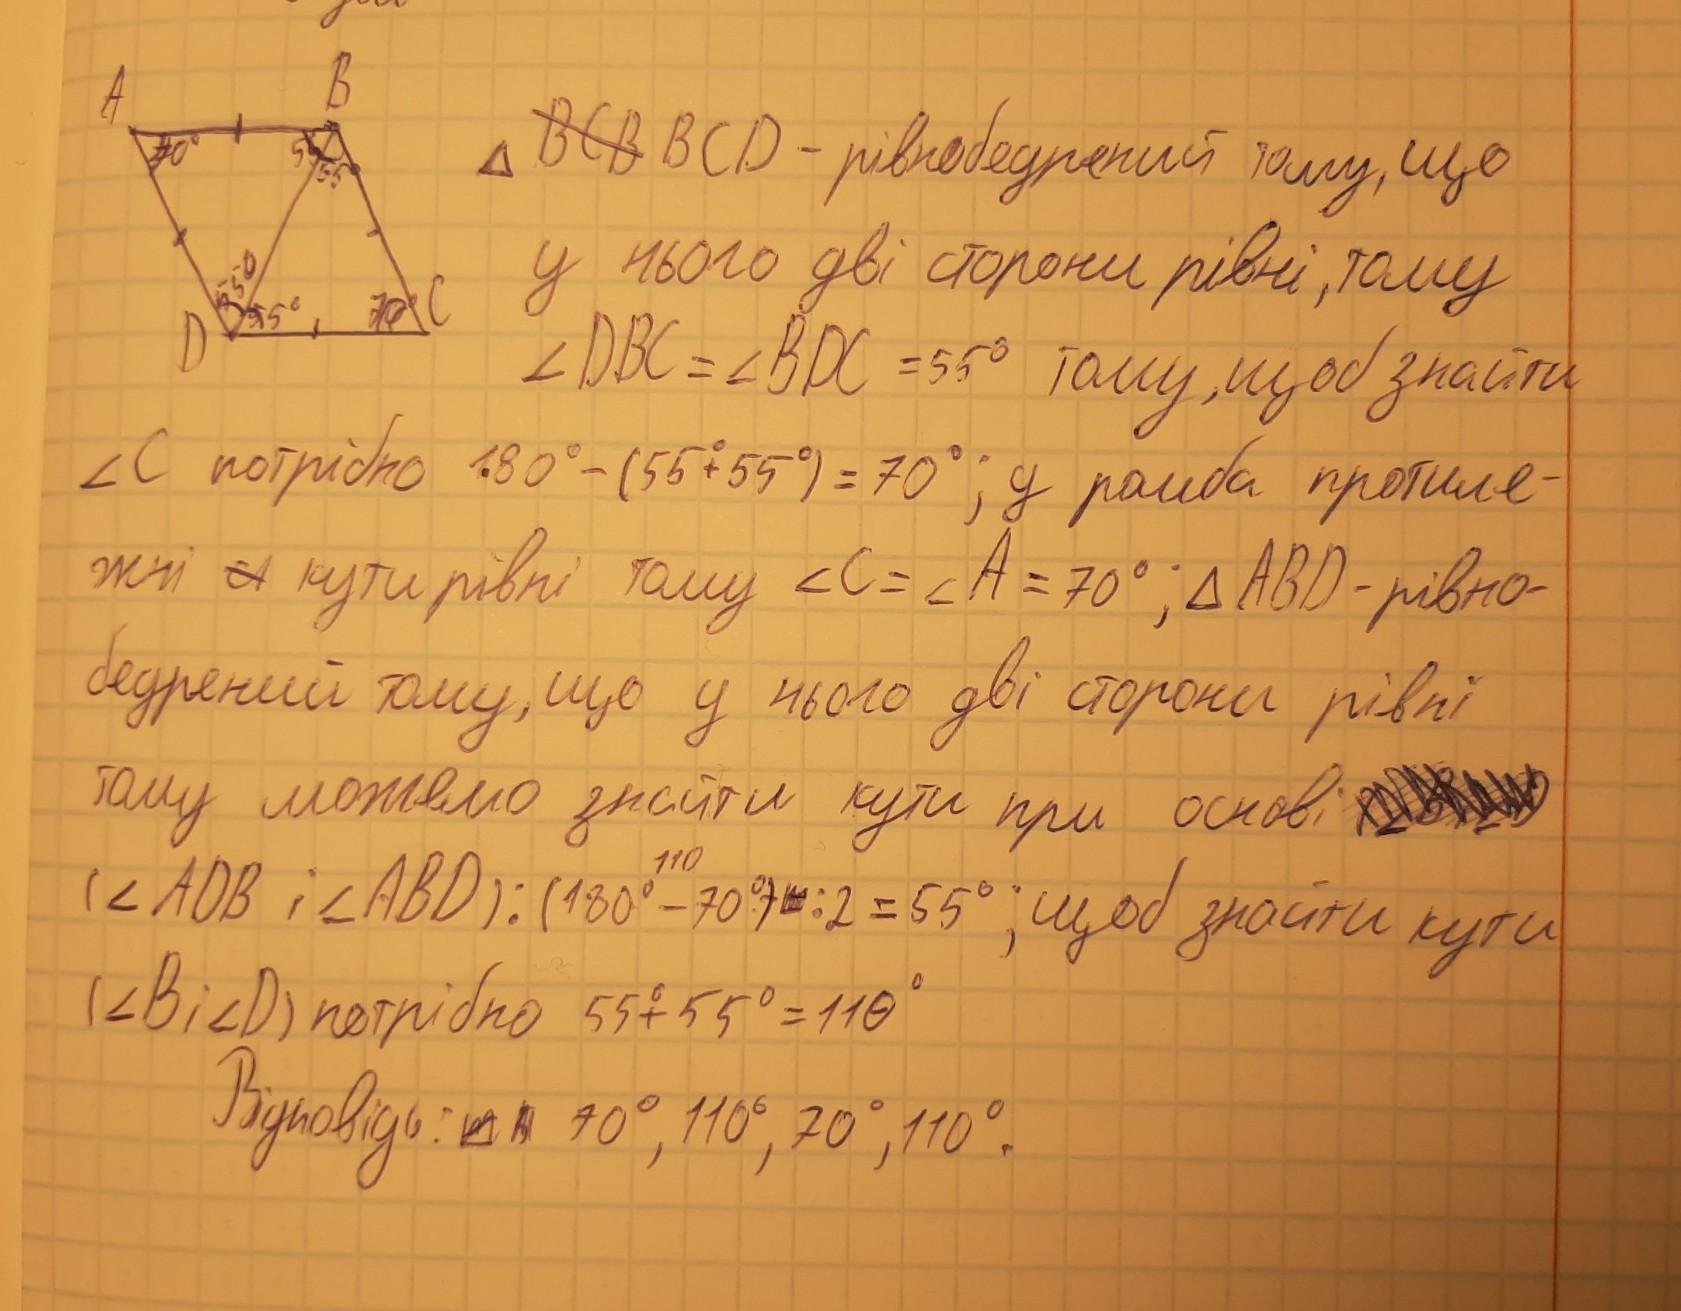 A B
70° 55° 55°
55° 55° 70° C
D
△ BCD - рівнобедрений тому, що
у нього дві сторони рівні, тому
∠DBC = ∠BDC = 55° тому, щоб знайти
∠C потрібно 180° - (55° + 55°) = 70°; у ромба протиле-
жні кути рівні тому ∠C = ∠A = 70°; △ ABD - рівно-
бедрений тому, що у нього дві сторони рівні
тому можемо знайти кути при основі
110
(∠ADB і ∠ABD): (180° - 70°) : 2 = 55°; щоб знайти кути
(∠B і ∠D) потрібно 55° + 55° = 110°
Відповідь: 70°, 110°, 70°, 110°.